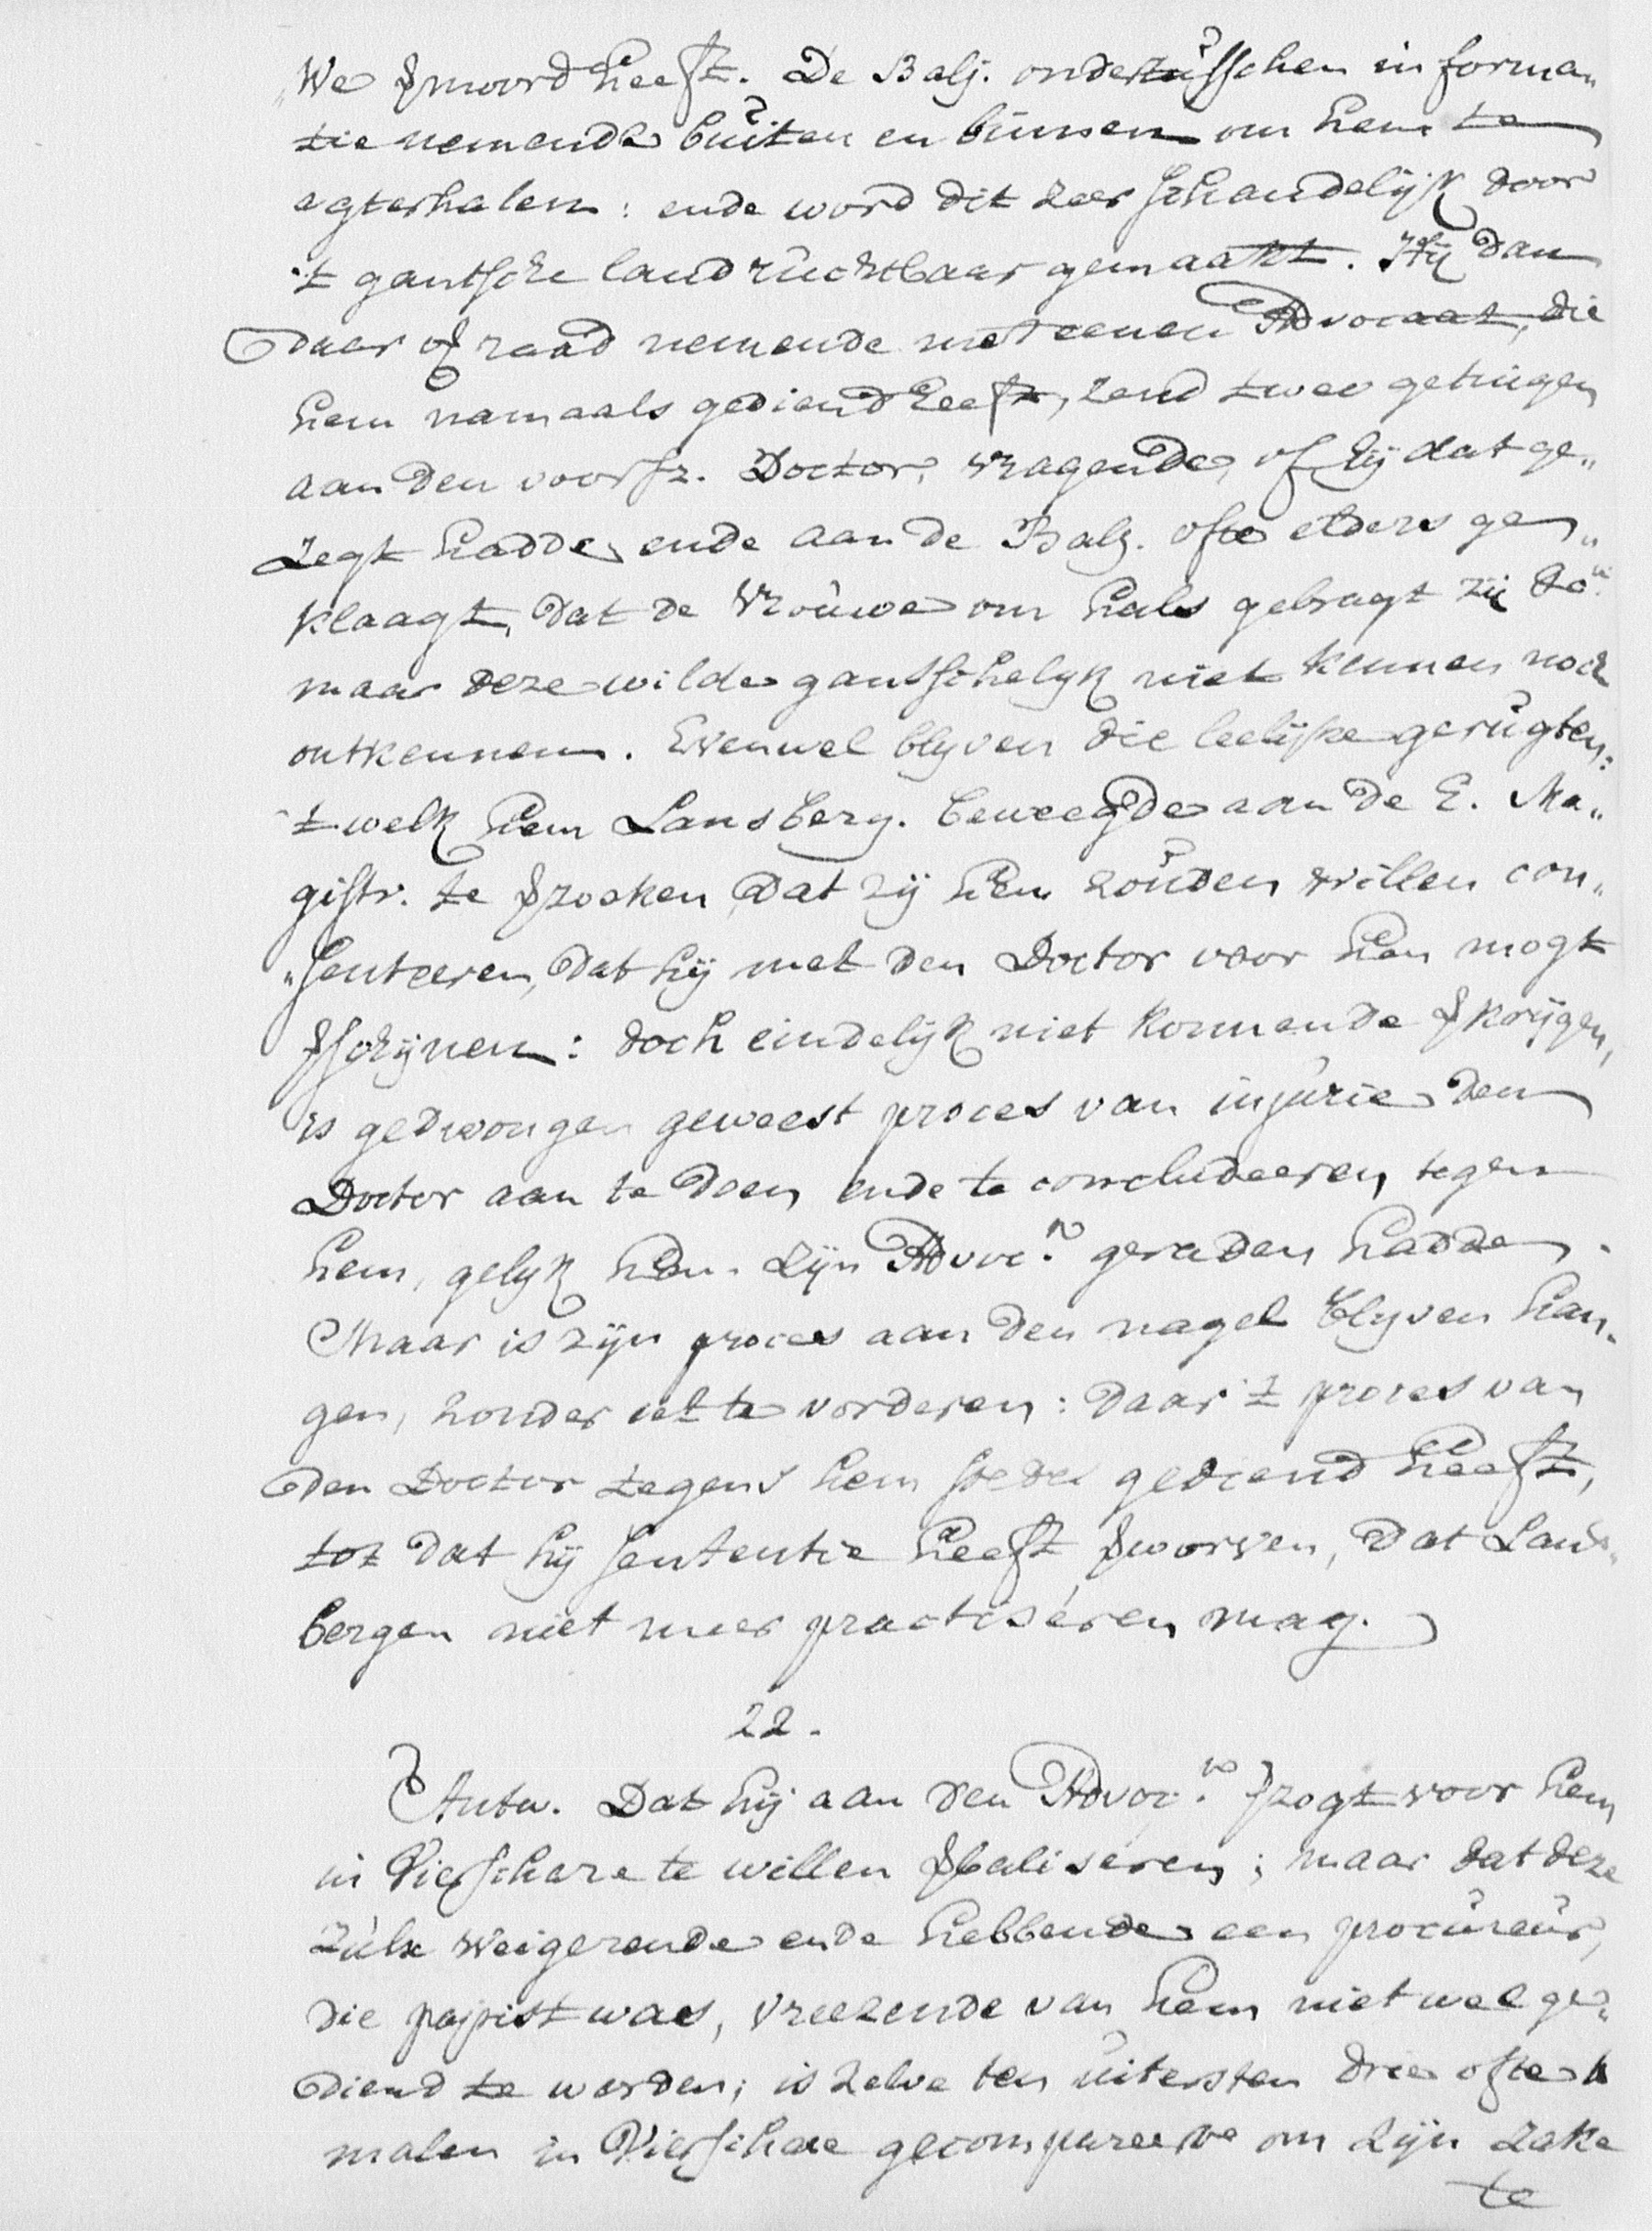 „We vermoord heeft. De Balj. ondertusschen informa„
tie nemende buiten en binnen om hem te
agterhalen: ende word dit zeer schandelijk door
't gantsche land ruchtbaar gemaakt. Hij dan
daar of raad nemende met eenen Advocaat, die
hem namaals gediend heeft, zend twee getuigen
aan den voorsz. Doctor, vragende, of hij dat ge„
zegt hadde, ende aan de Balj. ofte elders ge„
klaagt, dat de Vrouwe om hals gebragt zij &c.
maar deze wilde gantschelyk niet kennen noch
ontkennen. Evenwel blyven die leelijke gerugten:
't welk hem Lansberg. beweegde aan de E. Ma„
gistr. te verzoeken, dat zij hem zouden willen con„
„senteeren, dat hij met den Doctor voor hen mogt
verschijnen: doch eindelijk niet konnende verkrijgen,
is gedwongen geweest proces van injurie den
Doctor aan te doen, ende te concludeeren tegen
hem, gelyk hem zijn Advoc.ᵗ geraden hadde.
Maar is zijn proces aan den nagel blyven han„
gen, zonder iet te vorderen: daar 't proces van
den Doctor tegens hem stede gediend heeft,
tot dat hij sententie heeft verworven, dat Lans„
bergen niet meer practiséren mag.
22.
Antw. Dat hij aan den Advoc.ᵗ verzogt voor hem
in Vierschare te willen verbaliseren; maar dat deze
zulx weigerende ende hebbende een procureur,
die papist was, vreezende van hem niet wel ge„
diend te worden; is zelve ten uitersten drie ofte 4
malen in Vierschare gecompareerd om zijn zake
te